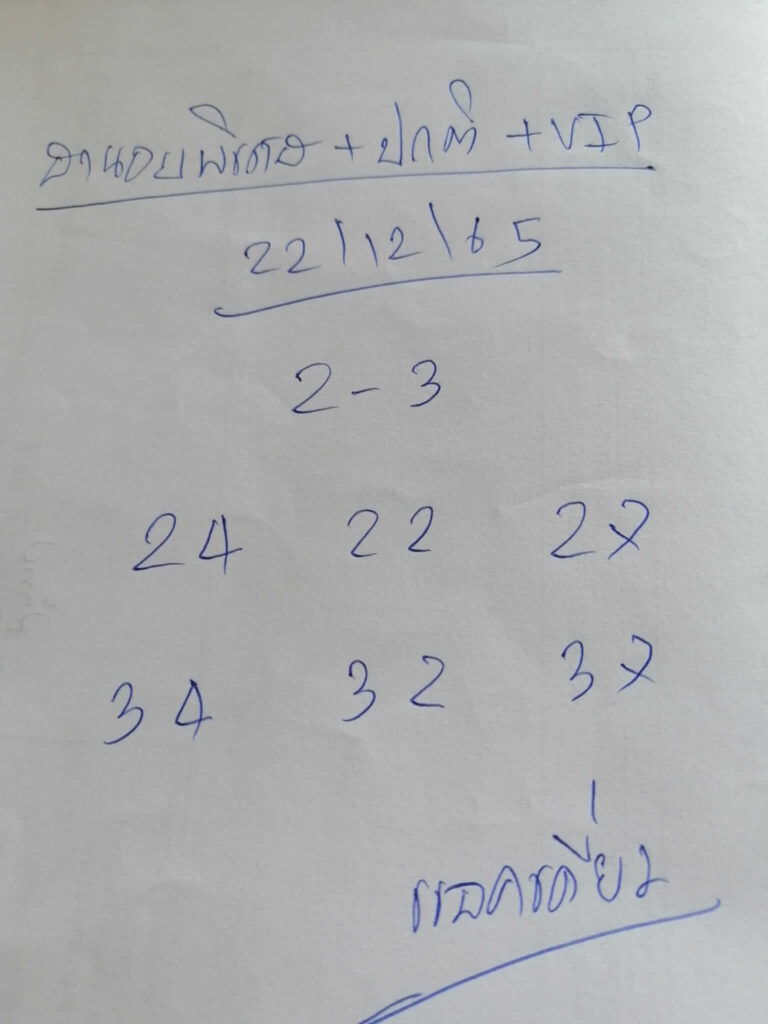 ฮานอยพิเศษ + ปกติ + VIP
22/12/65
2 - 3
24 22 27
34 32 37